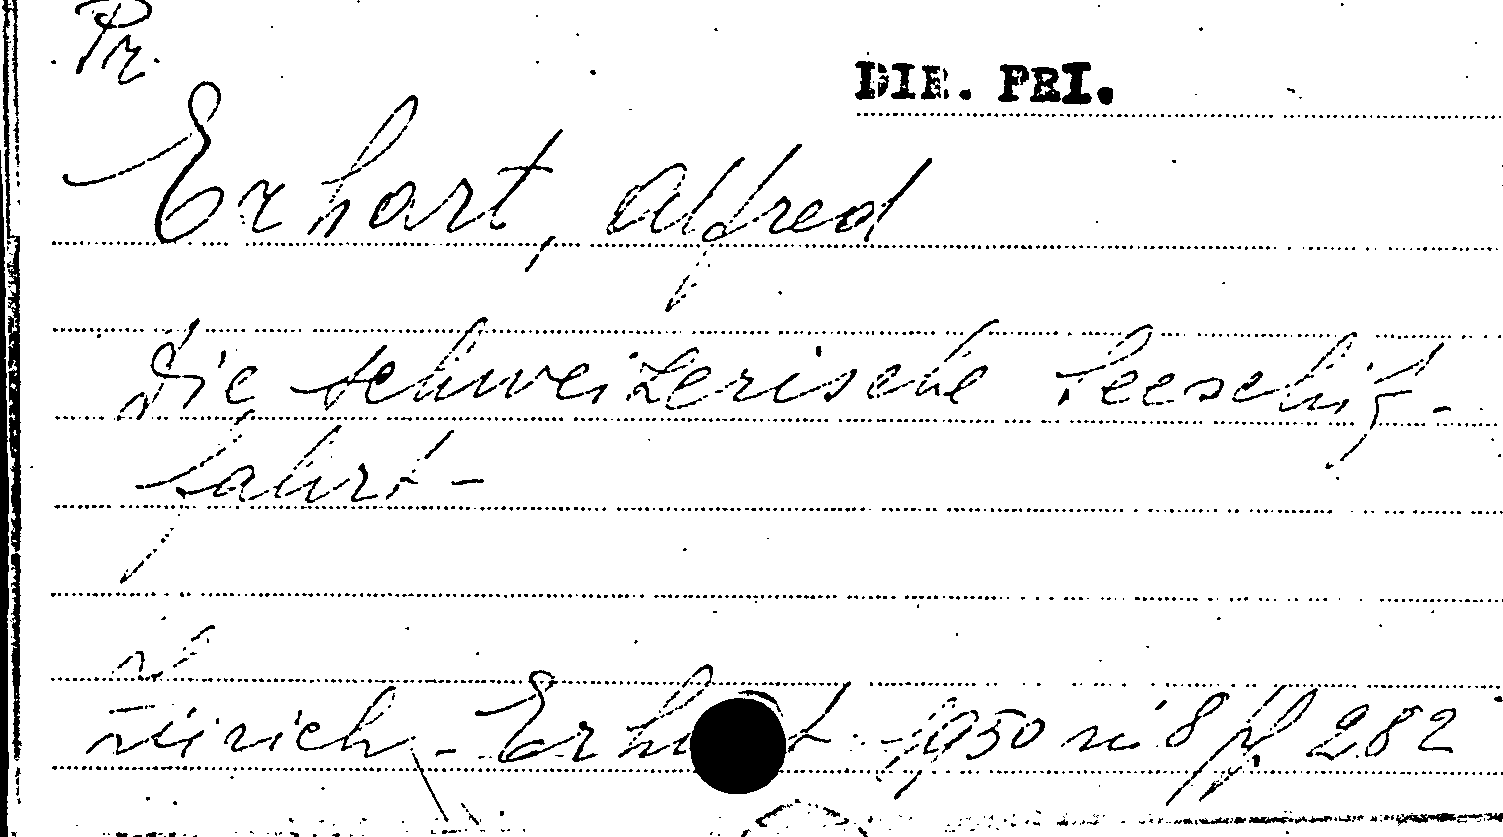 Pr.
DIR. PRI.
Erhart, Alfred
Die schweizerische Seeschif-
fahrt-
Zürich - Erhart 1950 in 8 pp 282